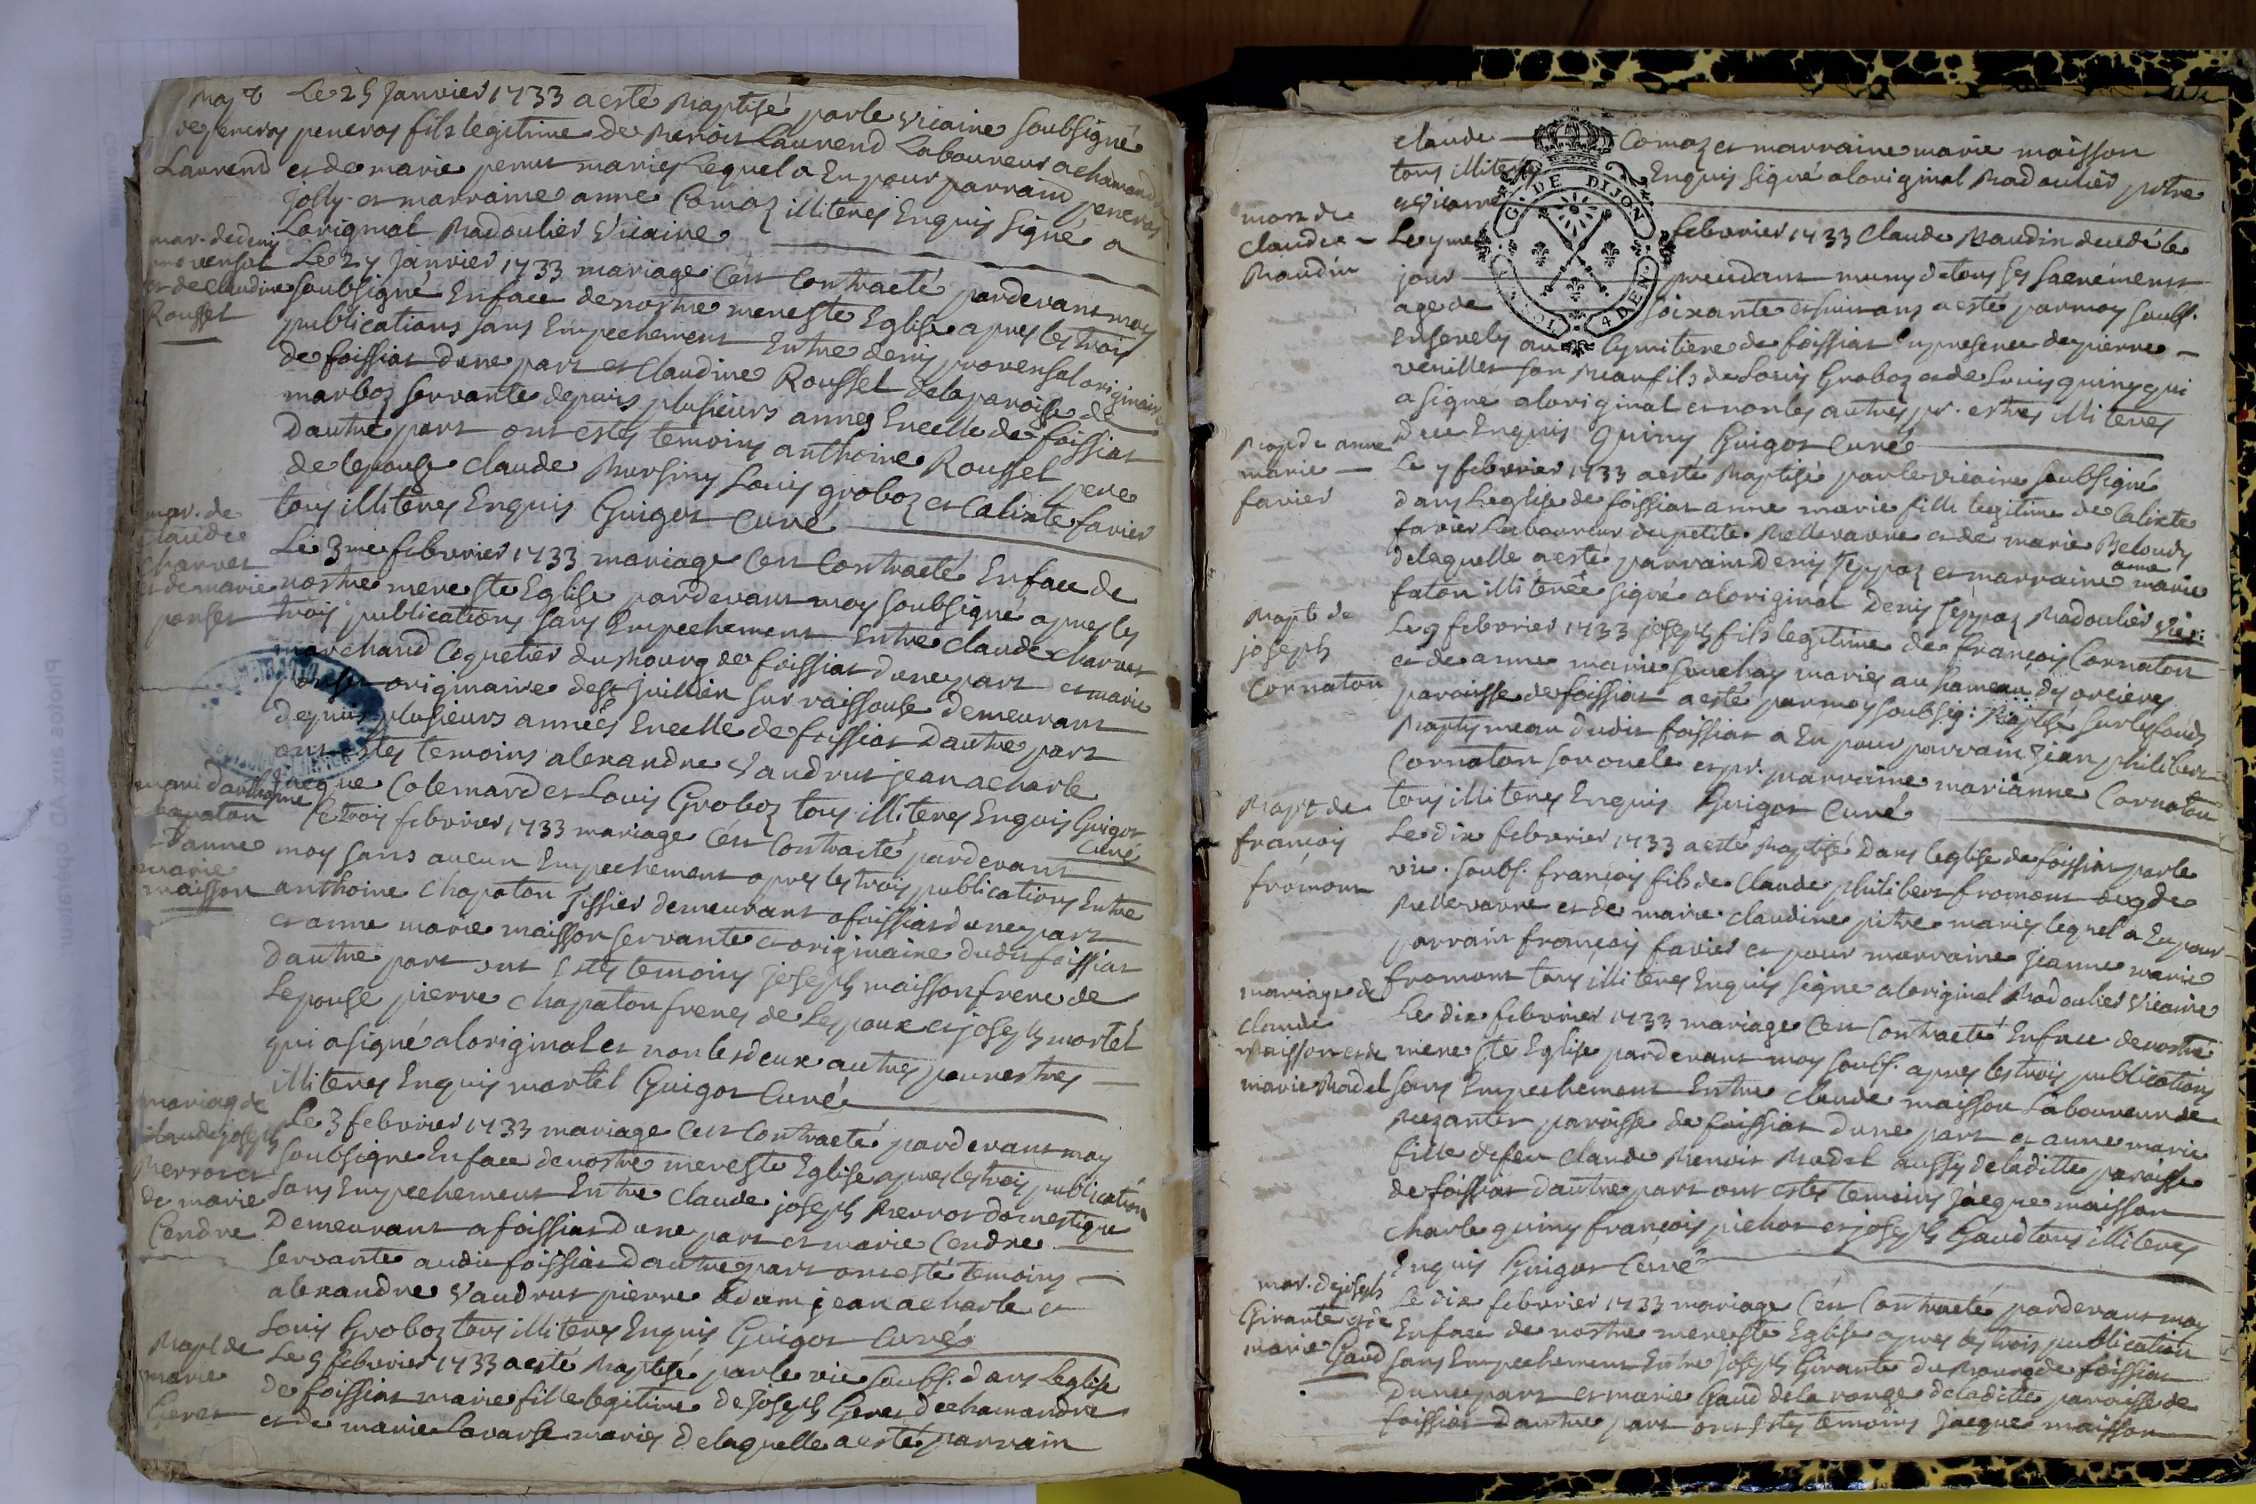 Le 25 Janvier 1733 a esté Baptisé par le vicaire soubsigné
pencras fils legitime de Benoit Laurend Laboureur a chamandre
et de marie perrut mariés Lequel a Eu pour parrain pencras
Jolly et marraine anne Comaz illiterés Enquis Signé a
Loriginal Badoulier Vicaire
Le 27 Janvier 1733 mariage C'est Contracté pardevant moy
soubsigné Enface de nostre mere ste Eglise apres les trois
publications sans Empechement Entre denis provensal originaire
de foissiat dune part et Claudine Roussel de la paroisse de
marboz servante depuis plusieurs annes Encelle de foissiat
Dautre part ont estés temoins anthoine Roussel pere
de lepouse Claude Mursiny Louis groboz et Calixte favier
tous illiterés Enquis Guigot Curé
Le 3me febvrier 1733 mariage C'est Contracté Enface de
nostre mere ste Eglise pardevant moy soubsigné apres les
trois publications sans Empechement Entre claude charvet
marchand Coquetier du Bourg de foissiat dune part et marie
originaire de st juillien sur raissouse demeurant
depuis plusieurs années Encelle de foissiat Dautre part
ont estés temoins alexandre Vaudrut jean acharle
jacque Colemard et Louis Groboz tous illiterés Enquis Guigot
Curé
Le trois febvrier 1733 mariage C'est Contracté pardevant
moy sans aucun Empechement apres les trois publications Entre
anthoine Chapaton Tissier demeurant a foissiat dune part
et anne marie maisson servante et originaire dudit foissiat
Dautre part ont Estés temoins joseph maisson frere de
Lepouse pierre Chapaton frere de Lepoux et joseph mortel
qui a signé aloriginal et non les deux autres pour estres
illiterés Enquis mortel Guigot Curé
Le 3 febvrier 1733 mariage C'est Contracté pardevant moy
soubsigné Enface de nostre mere ste Eglise apres les trois publication
sans Empechement Entre Claude joseph Merrot domestique
Demeurant a foissiat Dune part et marie Cendre
servante audit foissiat Dautre part ont esté temoins
alexandre Vaudrut pierre Adam jean acharle et
Louis Groboz tous illiterés Enquis Guigot Curé
Le 5 febvrier 1733 a esté Baptisé par le vic soubs. dans Leglise
de foissiat marie fille legitime de Joseph Geret de chamandre
et de marie Lavarse mariés De laquelle a esté parrain
Bap
Laurend
mar. de denis
provensal
et de claudine
Roussel
mar. de
claude
charvet
et de marie
ponset
mari danthoine
Chapaton
et anne
marie
maisson
mariag de
Claude joseph
Merrot et
de marie
Cendre
Bapt de
marie
Geret
claude Comaz et marraine marie maisson
tous illiterés Enquis signé aloriginal Badoulier ptre
et vicaire
Le 7me febvrier 1733 Claude Baudin decedé le
jour precedant muny de tous ses sacrements
age de soixante et huit ans a esté par moy soubs.
Ensevely au Cymitiere de foissiat En presence de pierre
veuillet son Beaufils de Louis Groboz et de Louis quiny qui
a signé aloriginal et non les autres pr. estres illiterés
Dece Enquis Quiny Guigot Curé
Le 7 febvrier 1733 a esté Baptisé par le vicaire soubsigné
dans Leglise de foissiat anne marie fille legitime de Calixte
favier Laboureur du petit Bellevavre et de marie Beloudy
de laquelle a esté parrain Denis Seppoz et marraine anne marie
faton illiterée signé aloriginal Denis Seppoz Badoulier Vic:
Le 9 febvrier 1733 joseph fils legitime de françois Cornaton
et de anne marie Couchoy mariés au hameau des orcieres
paroisse de foissiat a esté par moy soubsig: Baptisé sur les fonds
Baptismeau dudit foissiat a Eu pour parrain Jean philibert
Cornaton son oncle et pr. marraine marianne Cornaton
tous illiterés Enquis Guigot Curé
Le dix febvrier 1733 a esté Baptisé Dans leglise de foissiat par le
vic. soubs. françois fils de Claude philibert fromont de
Bellevavre et de marie Claudine pitre mariés lequel a Eu pour
parrain françois favier et pour marraine Jeanne marie
fromont tous illiterés Enquis signé aloriginal Badoulier Vicaire
Le dix febvrier 1733 mariage C'est Contracté Enface de nostre
mere ste Eglise pardevant moy soubs. apres les trois publications
sans Empechement Entre Claude maisson Laboureur de
Bezantet paroisse de foissiat Dune part et anne marie
fille de feu Claude Benoit Badel aussy de laditte paroisse
de foissiat dautre part ont estés temoins Jacque maisson
Charle quiny françois pichot et joseph Gaud tous illiterés
Enquis Guigot Curé
Le dix febvrier 1733 mariage C'est Contracté pardevant moy
Enface de nostre mere ste Eglise apres les trois publication
sans Empechement Entre joseph Girante du Bourg de foissiat
Dune part et marie Gaud de la ronge de laditte paroisse de
foissiat Dautre part ont Estés temoins Jacque maisson
mort de
Claude
Baudin
Bap de anne
marie
favier
Bapt de
joseph
Cornaton
Bapt de
françois
fromont
mariage de
claude
Maisson et de
marie Badel
mar. de joseph
Girante et de
marie Gaud
G. DE DIJON
4 DEN.